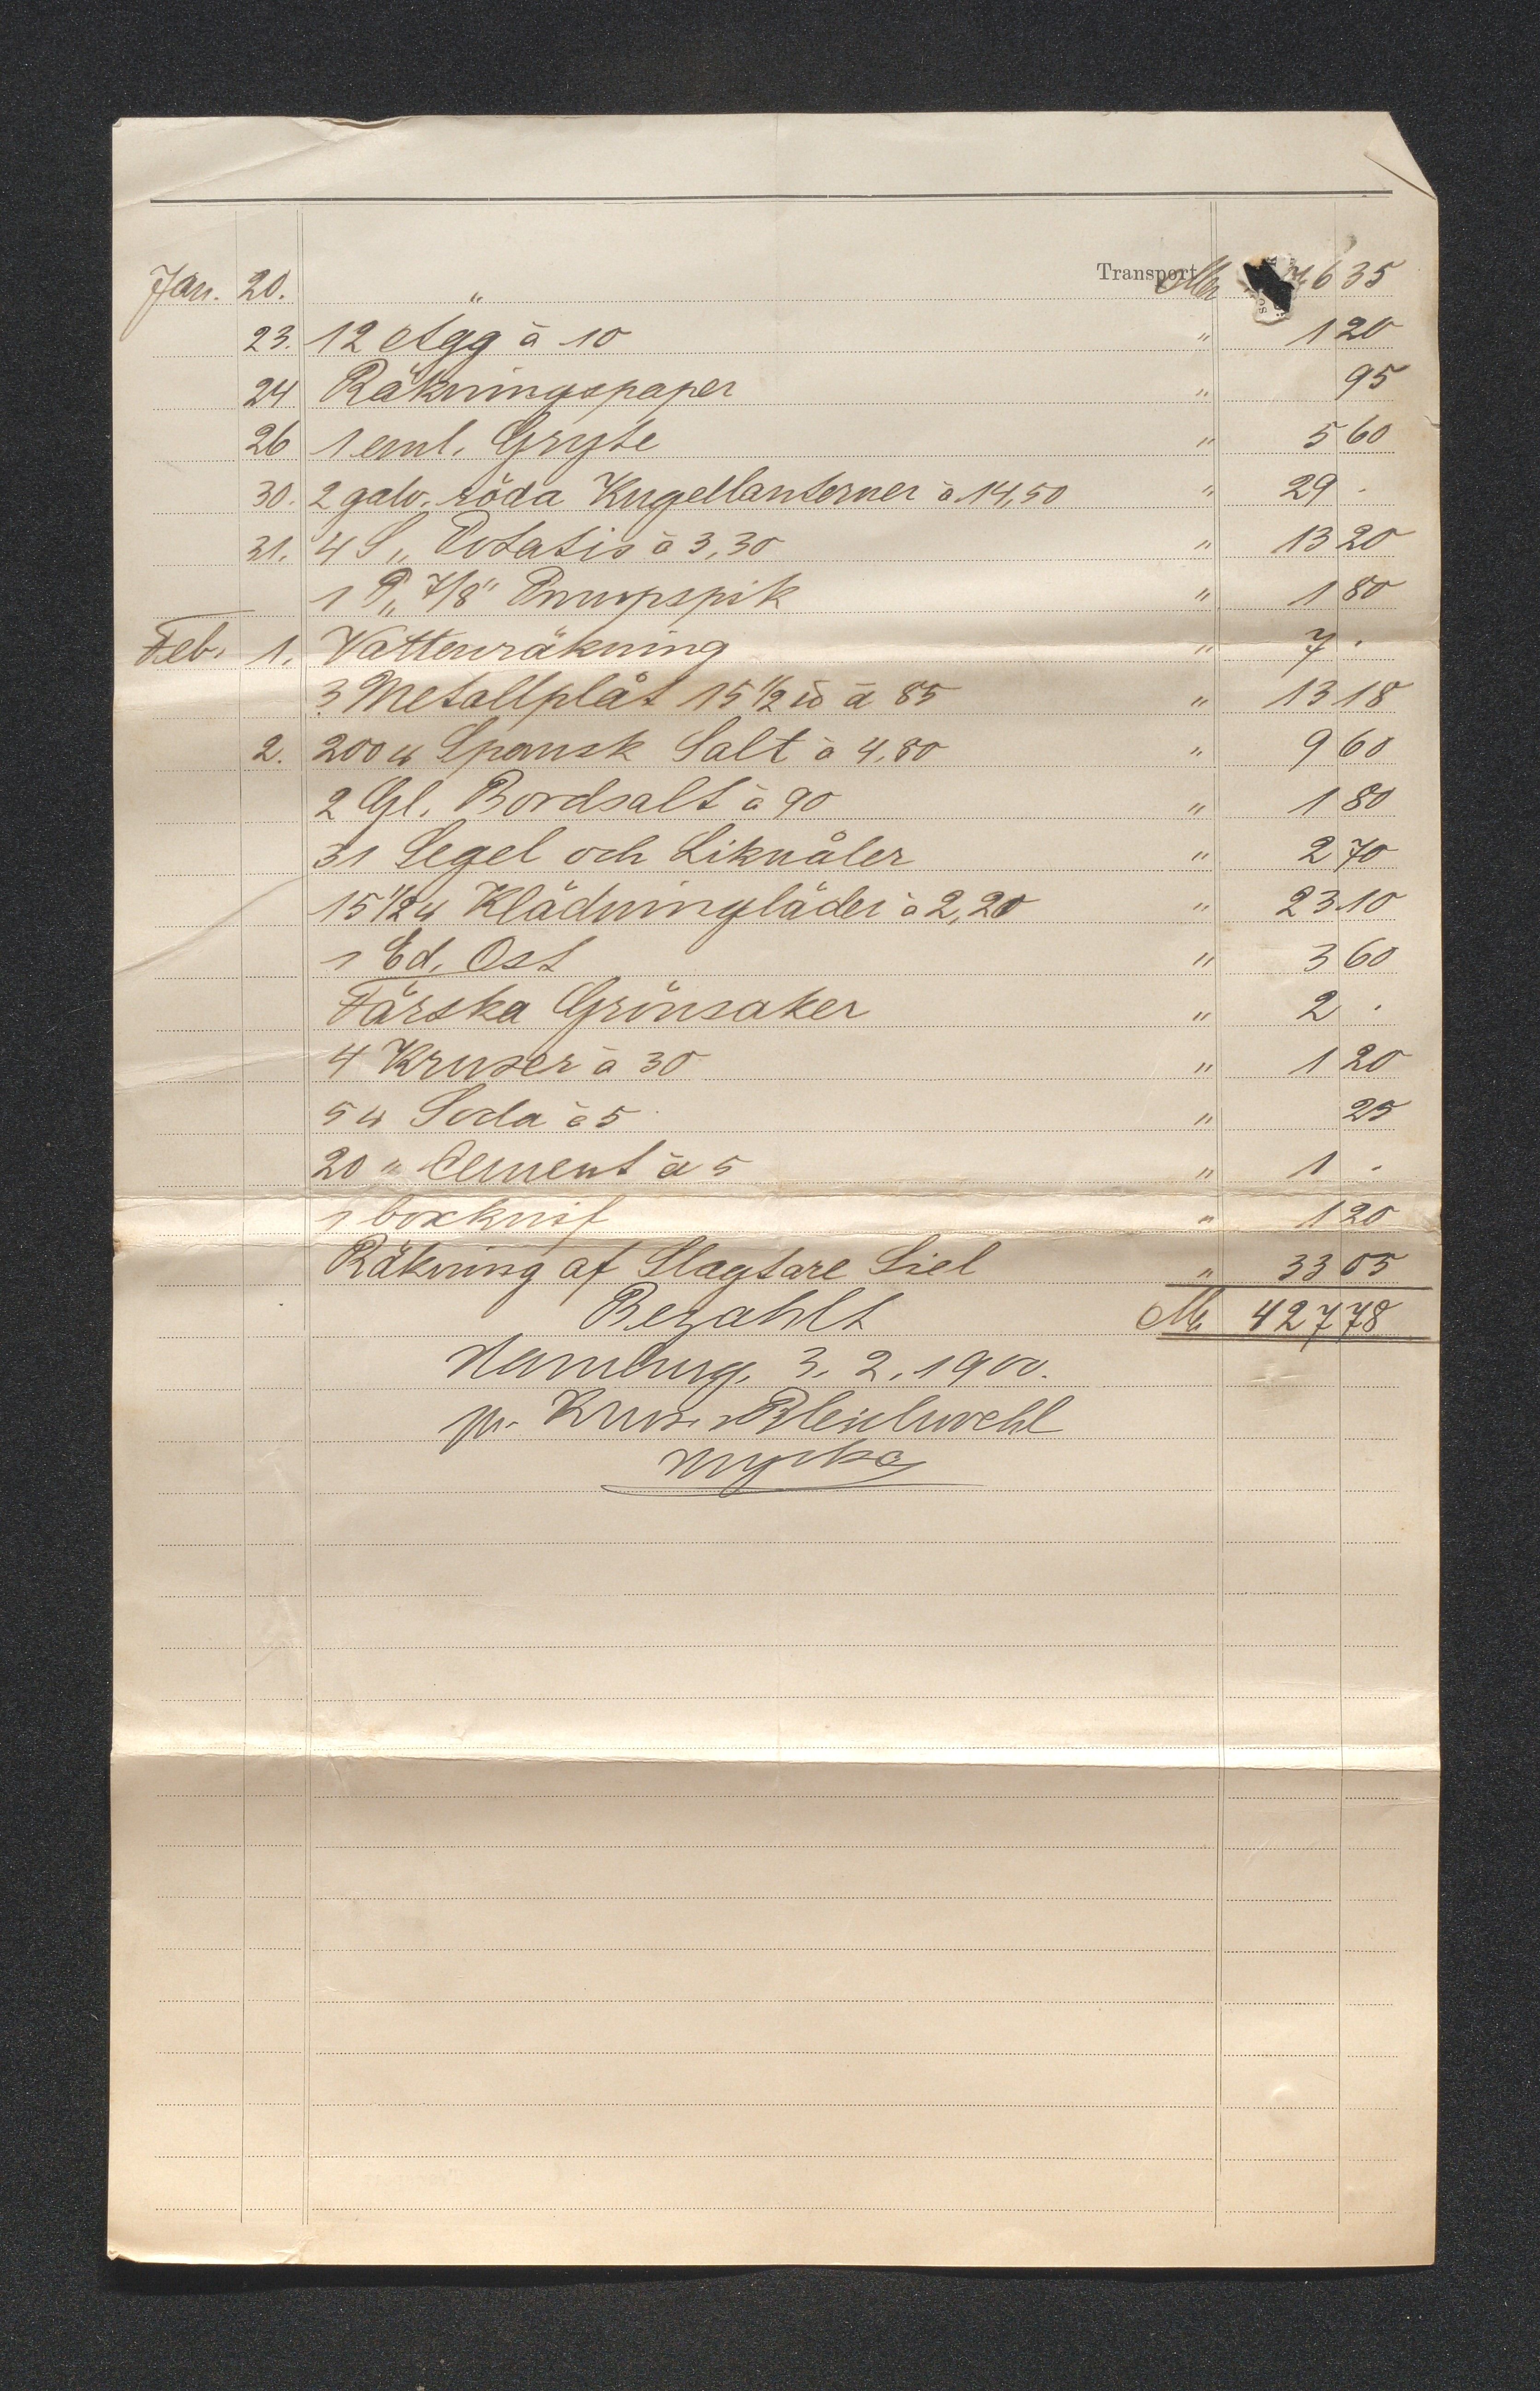 Transport
Jan. 20. " Mk 635
23. 12 Ägg à 10 " 1 20
24 Räkningspaper " 95
26 1 eml. Gryte " 5 60
30. 2 galv. röda Kugellanterner à 14,50 " 29 .
31. 4 S„ Potatis à 3,30 " 13 20
1 P„ 7/8" Pumpspik " 1 80
Feb. 1. Vattenräkning " 7 .
3 Metallplåt 15 1/2 ℔ à 85 " 13 18
2. 200 ℔ Spansk Salt à 4,80 " 9 60
2 Gl. Bordsalt à 90 " 1 80
31 Segel och Liknåler " 2 70
15 1/2 ℔ Klädningläder à 2,20 " 23 10
1 Ed. Ost " 3 60
Färska Grönsaker " 2 .
4 Kruser à 30 " 1 20
5 ℔ Soda à 5 " 25
20 " Cement à 5 " 1 .
1 boxknif " 1 20
Räkning af Slagtare Siel " 33 05
Bezahlt Mk 427 78
Hamburg, 3. 2. 1900.
pr.